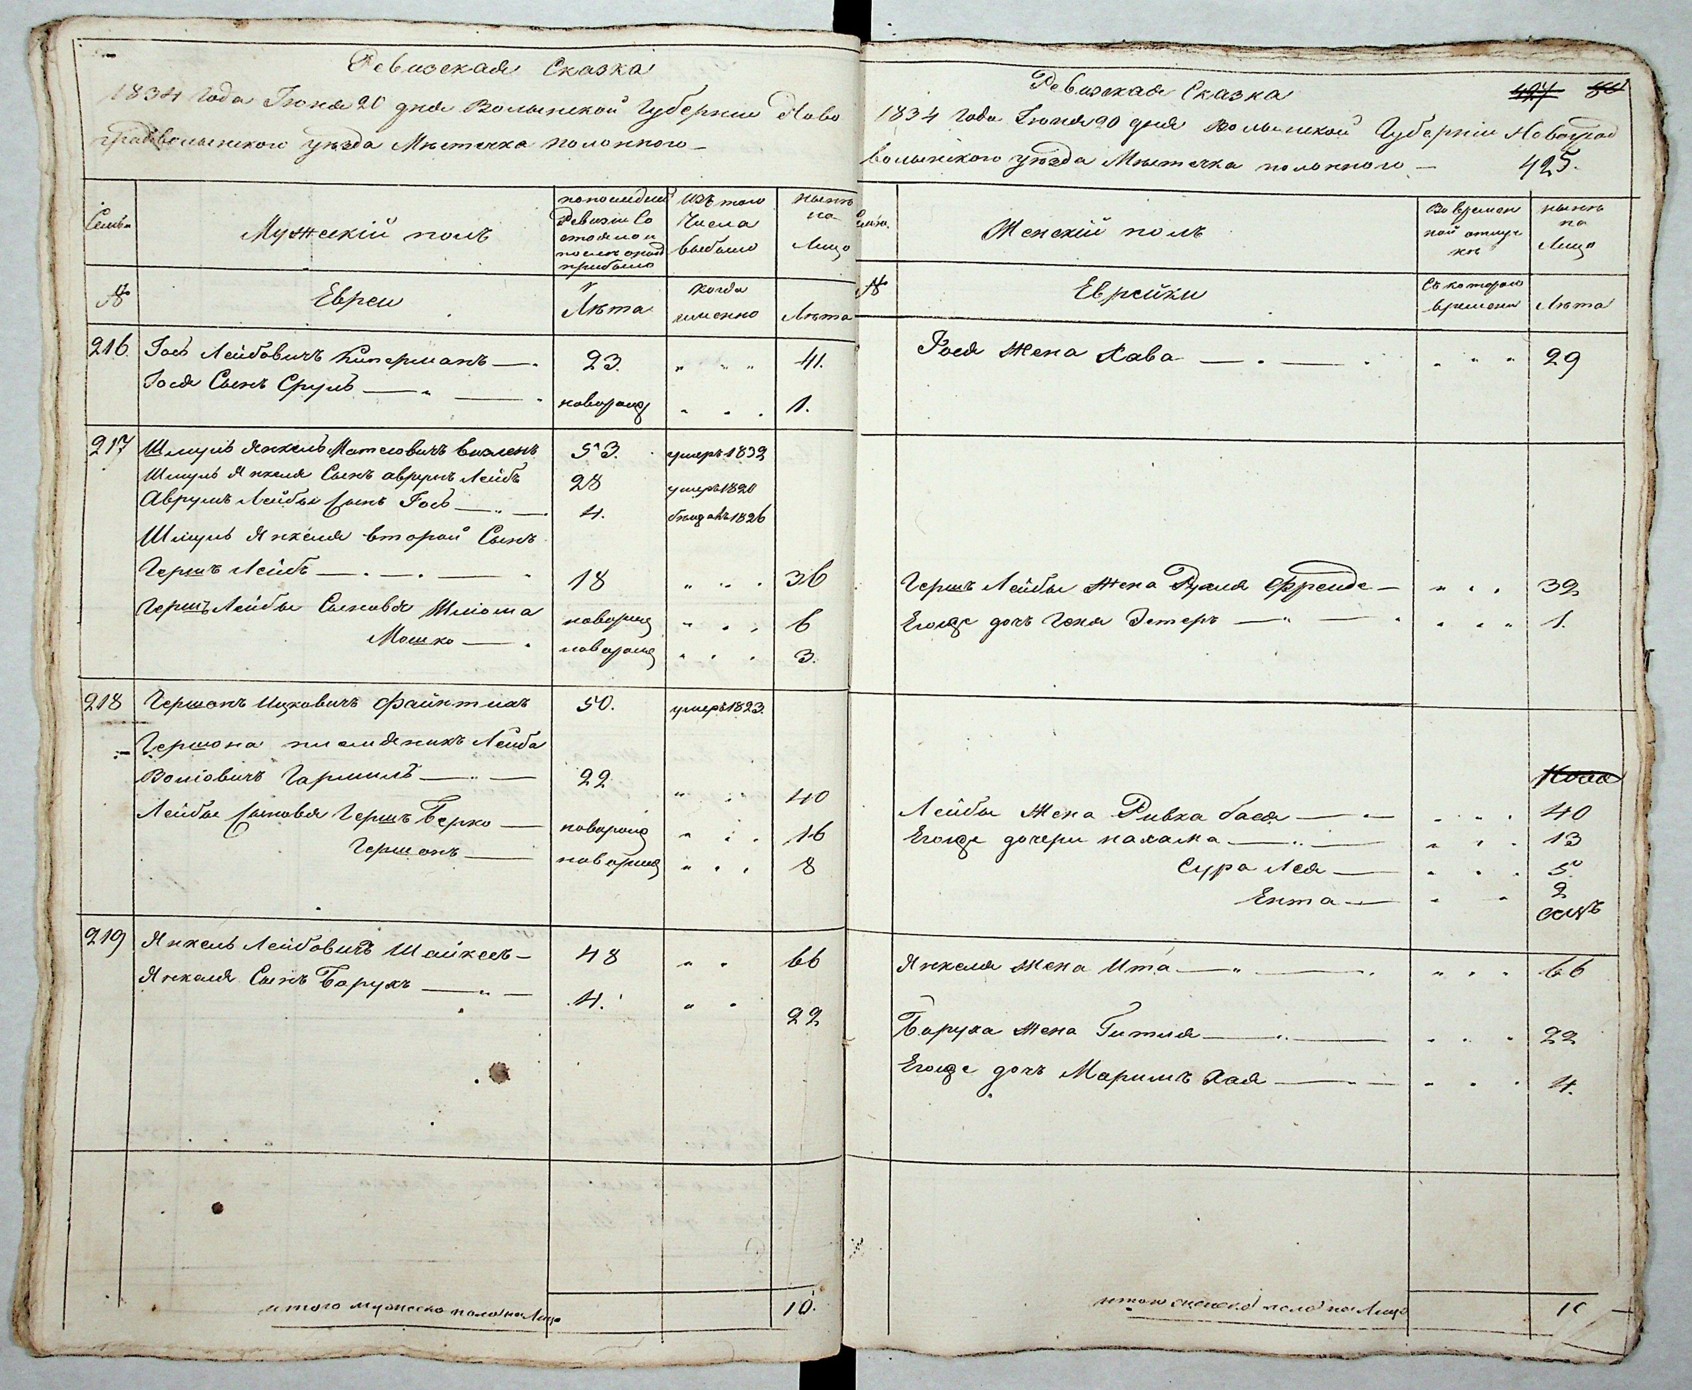 Ревизская Сказка
1834 Года Іюня 20 дня Волынской Губерніи Ново
градволынского уезда Местечка полонного —
Семьи
Мужескій полъ
попоследней Ревизіи Состояло и после оной прибыло
Изъ того Числа выбыло
ныне на Лицо
№
Евреи
Лета
когда именно
Лета
216. Гось Лейбовичъ Киперманъ — 23. 41.
Гося Сынъ Сруль — новорожд 1.
217 Шмуль Янкель Мотеовичъ 53. умеръ 1832
Шмуль Янкеля Сынъ аврумъ Лейбъ 28 умеръ 1820
Аврумъ Лейбы Сынъ Гось — 4. 1826
Шмуль Янкеля второй Сынъ
Гершъ Лейбъ — 18 36
Гершъ Лейбы Сыновья Шлиома новорожд 6
Мошко — новорожд 3.
218 Гершонъ Ицковичъ 50. умеръ 1823.
Гершона племяникъ Лейба
Волговичъ Гармиль — 22 40
Лейбы Сыновья Гершъ Берко — новорожд 16
Гершонъ — новорожд 8
219 Янкель Лейбовичъ Шайкесъ — 48 66
Янкеля Сынъ Барухъ — 4. 22
итого мужеска пола на Лицо 10.
Ревизская Сказка
1834 Года Іюня 20 дня Волынской Губерніи Новоград
волынского уезда Местечка полонного — 425.
Семьи.
Женскій полъ
Во временной отлучке
ныне на Лицо
№
Еврейки
Съ которого времени
Лета
Гося Жена Хава — 29
Гершъ Лейбы Жена Рухля Фрейде — 32
Егожде дочь Геня Эстеръ — 1.
Лейбы Жена Ривка бася — 40
Егожде дочери нахама — 13
Сура Лея — 5
Ента — 2
Янкеля Жена Ита — 66
Баруха Жена Гитля — 22
Егожде дочь Маримъ Хая — 4.
итого женска пола на Лицо 10